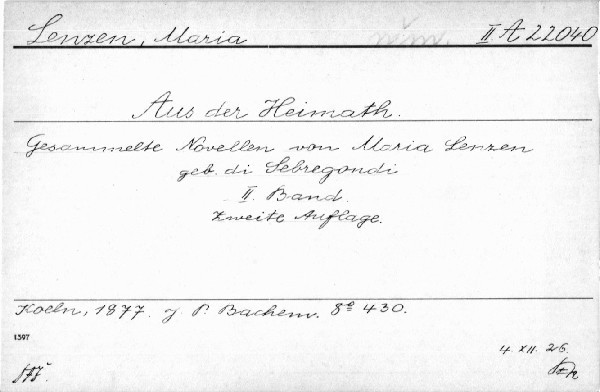 Lenzen, Maria něm. II A 22040
Aus der Heimath.
Gesammelte Novellen von Maria Lenzen
geb. di Sebregondi
II. Band.
Zweite Auflage.
Koeln, 1877. J P. Bachem. 8° 430.
1397
4. XII. 26.